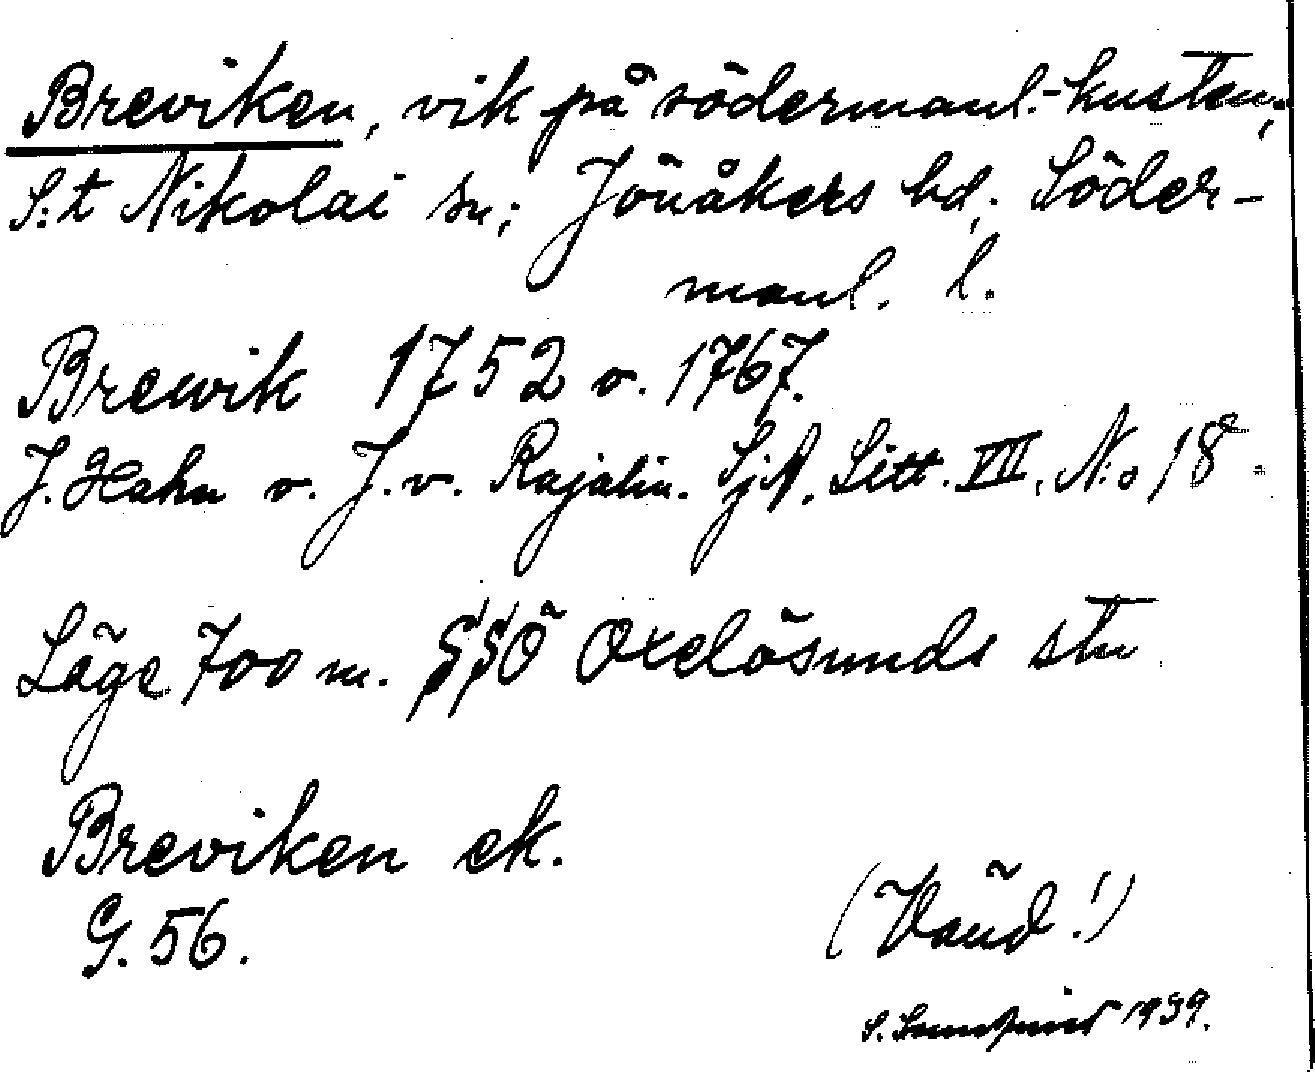 Breviken, vik på södermanl.-kusten,
S:t Nikolai sn; Jönåkers hd; Söder-
manl. l.
Brewik 1752 o. 1767.
J. Hahn o. J. v. Rajalin. SjA. Litt. VII. N:o 18.
Läge 700 m. SSÖ Oxelösunds stn
Breviken ek.
G. 56.
(Vänd!)
S. 1939.